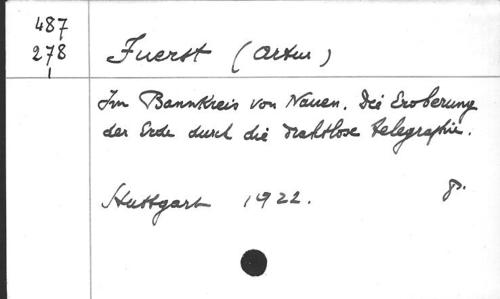 487
278
Fuerst (Artur)
Im Bannkreis von Nauen. Die Eroberung
der Erde durch die drahtlose Telegraphie.
Stuttgart 1922. 8º.